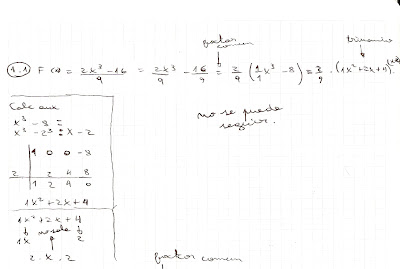 factor
comun
trinomio
1.1 F(x) = 2x³ - 16 / 9 = 2x³ / 9 - 16 / 9 = 2/9 (1/1 x³ - 8) = 2/9 · (1x² + 2x + 4) ·
no se puede
seguir.
Calc aux
x³ - 8 =
x³ - 2³ : x - 2
1 0 0 -8
2 2 4 8
1 2 4 0
1x² + 2x + 4
1x² + 2x + 4
no sale
1x 2
2 · x · 2
factor comun